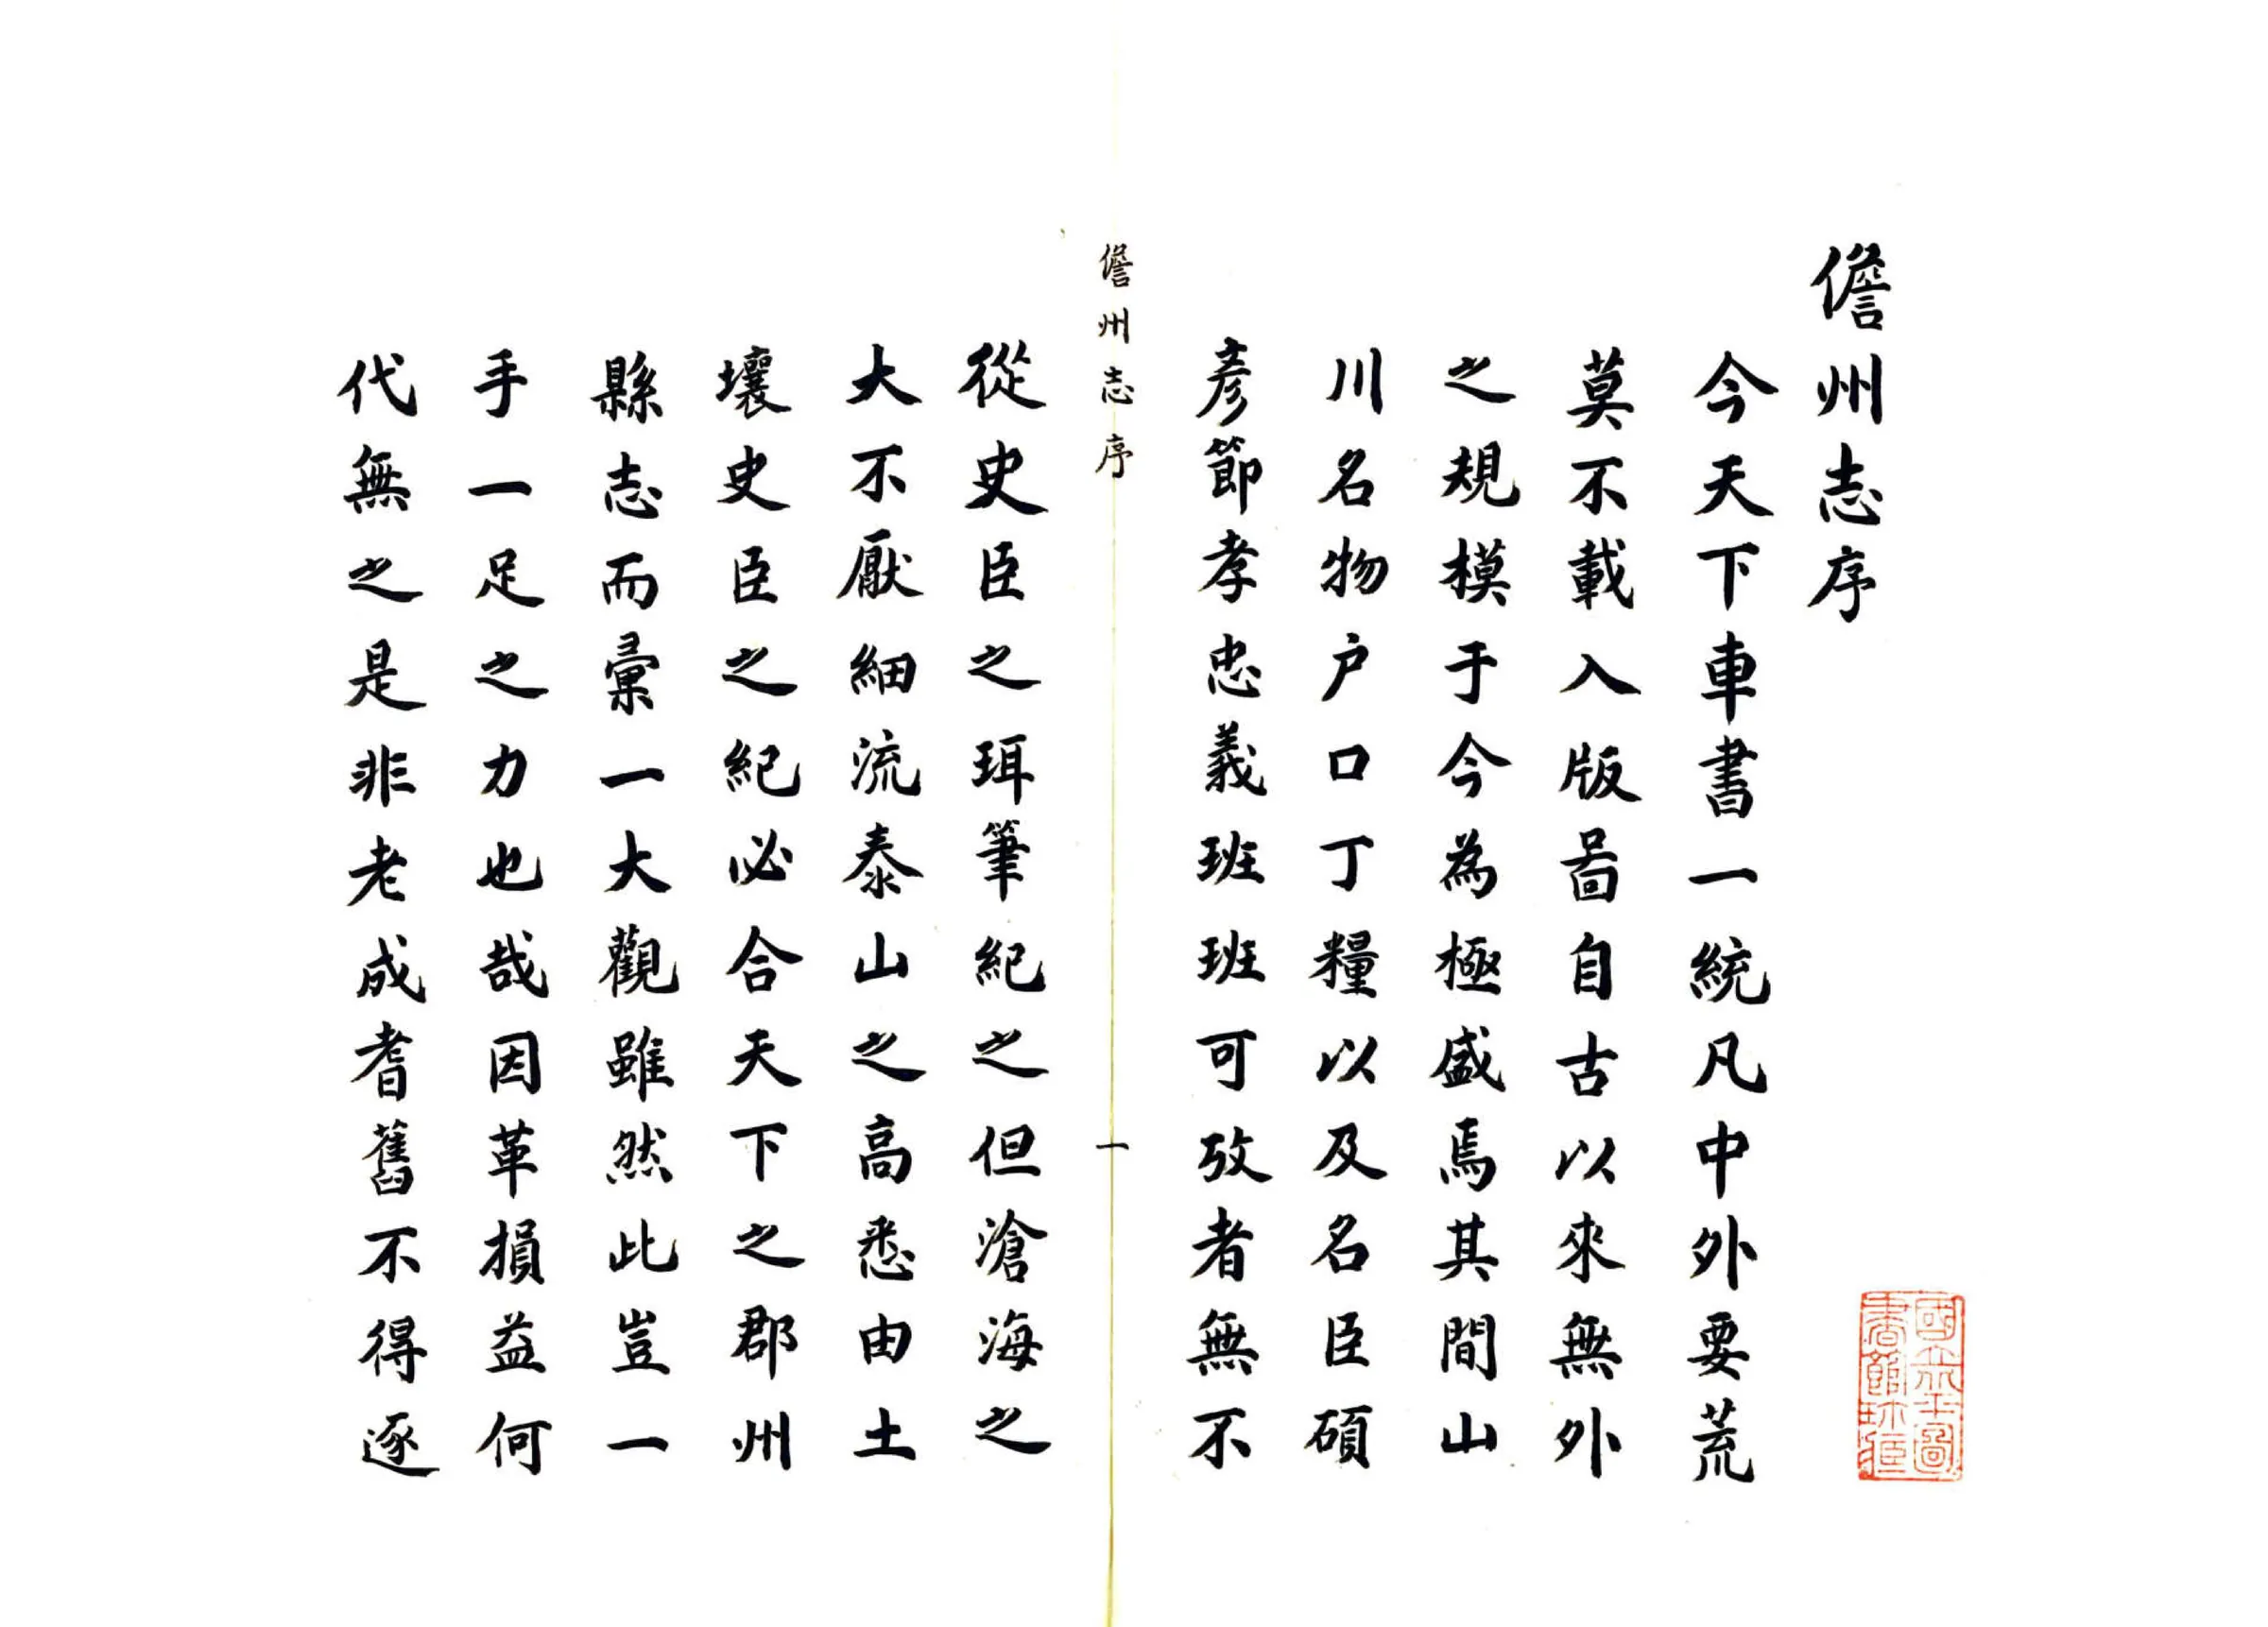 儋州志序
今天下車書一統凡中外要荒
莫不載入版啚自古以來無外
之規模于今為極盛焉其間山
川名物户口丁糧以及名臣碩
彥節孝忠義班班可攷者無不
儋州志序
一
從史臣之珥筆紀之但滄海之
大不厭細流泰山之高悉由土
壤史臣之紀必合天下之郡州
縣志而彙一大觀雖然此豈一
手一足之力也哉因革損益何
代無之是非老成耆舊不得逐
國立北平圖
書館珍藏